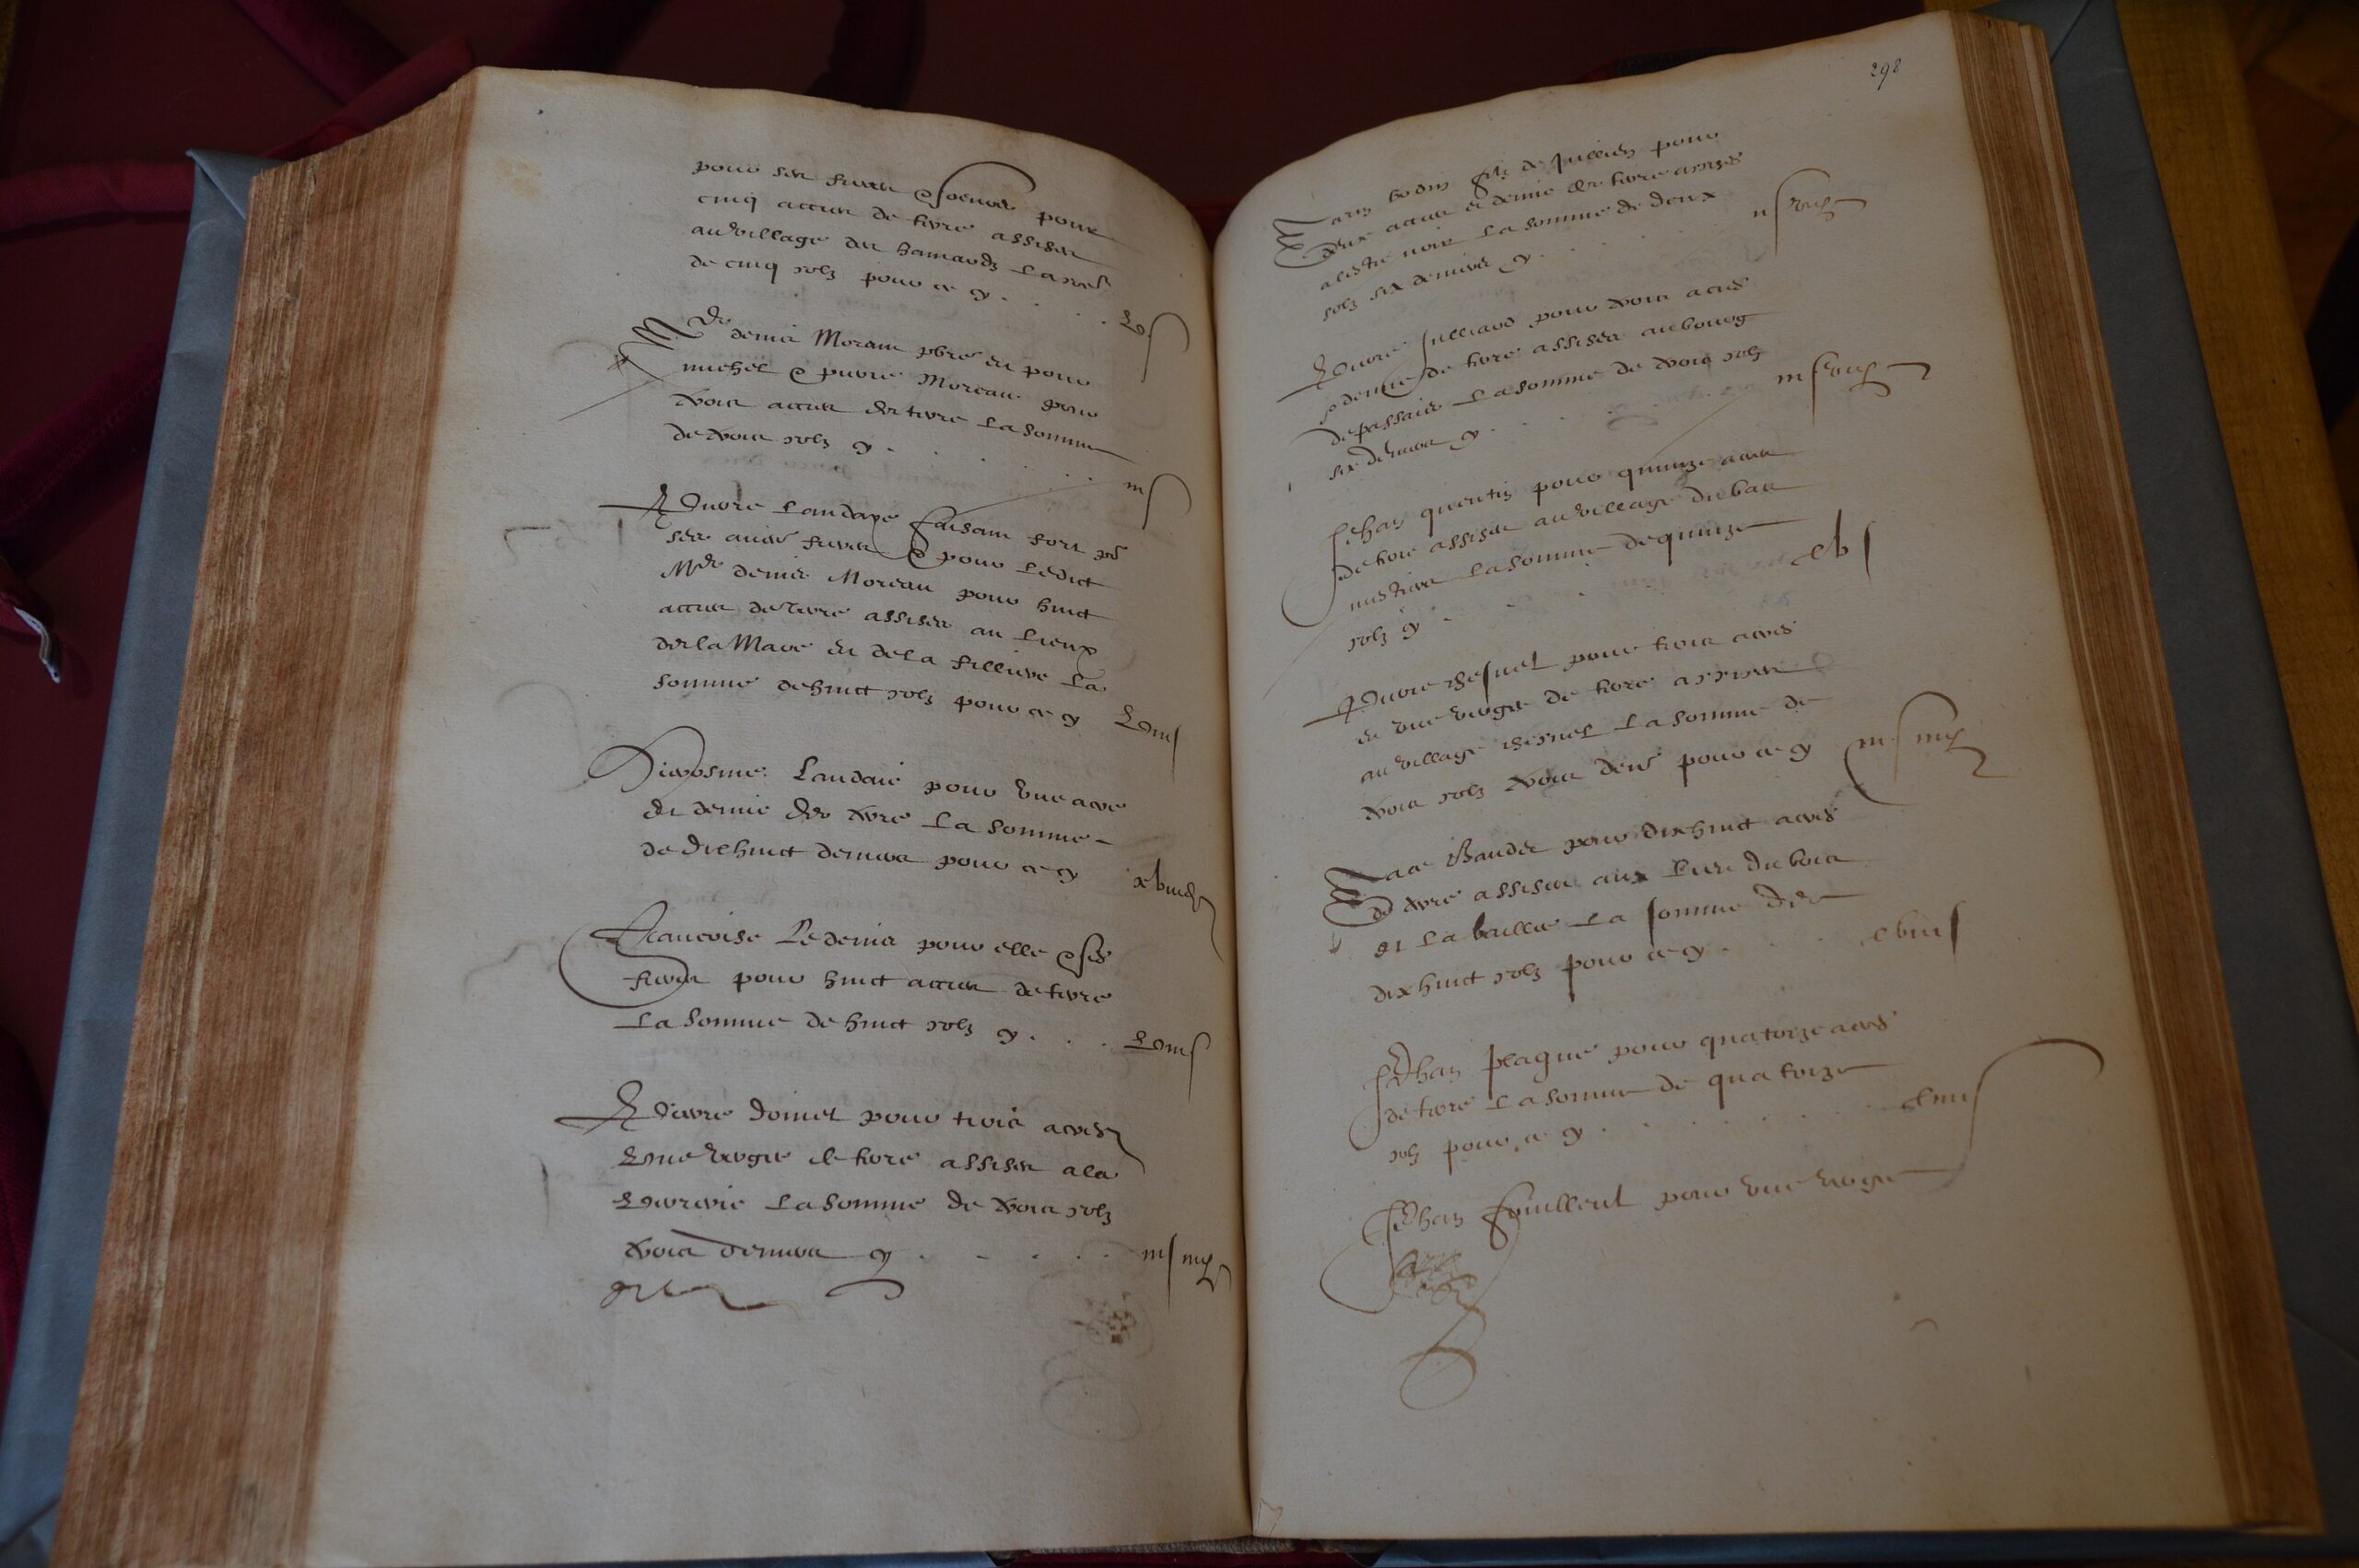 pour ses freres & soeurs pour
cinq acres de terre assises
au village des hamards la somme
de cinq solz pour ce cy . . . v s
Me denis Moreau pbre et pour
michel & pierre Moreau pour
trois acres de terre la somme
de trois solz cy . . . . . iii s
Pierre Landaye faisant fort pour
ses aultres freres & pour ledict
Me denis Moreau pour huict
acres de terre assises au lieux
de la Mare et de la
somme de huict solz pour ce cy viii s
Landaie pour une acre
et demie de terre la somme
de dixhuict deniers pour ce cy xviii d
Francoise Le denis pour elle & ses
freres pour huict acres de terre
la somme de huict solz cy . . . viii s
Pierre doinel pour trois acres
une vergee de terre assises a la
la somme de trois solz
trois deniers cy . . . . . iii s iii d
298
bodin filz de Jullien pour
deux acres et demie de terre assises
a noir la somme de deux
solz six deniers cy . . . . ii s vi d
Pierre Julliard pour trois acres
& demie de terre assises au bourg
de passais la somme de trois solz
six deniers cy . . . . iii s vi d
Jehan quentin pour quinze acres
de terre assises au village du bas
la somme de quinze
solz cy . . . . xv s
Pierre pour trois acres
et une vergee de terre assises
au village la somme de
trois solz trois den pour ce cy iii s iii d
pour dixhuict acres
de terre assises aux du bois
et la la somme de
dixhuict solz pour ce cy . . . xviii s
Jehan plague pour quatorze acres
de terre la somme de quatorze
solz pour ce cy . . . . . xiiii s
Jehan pour une vergee